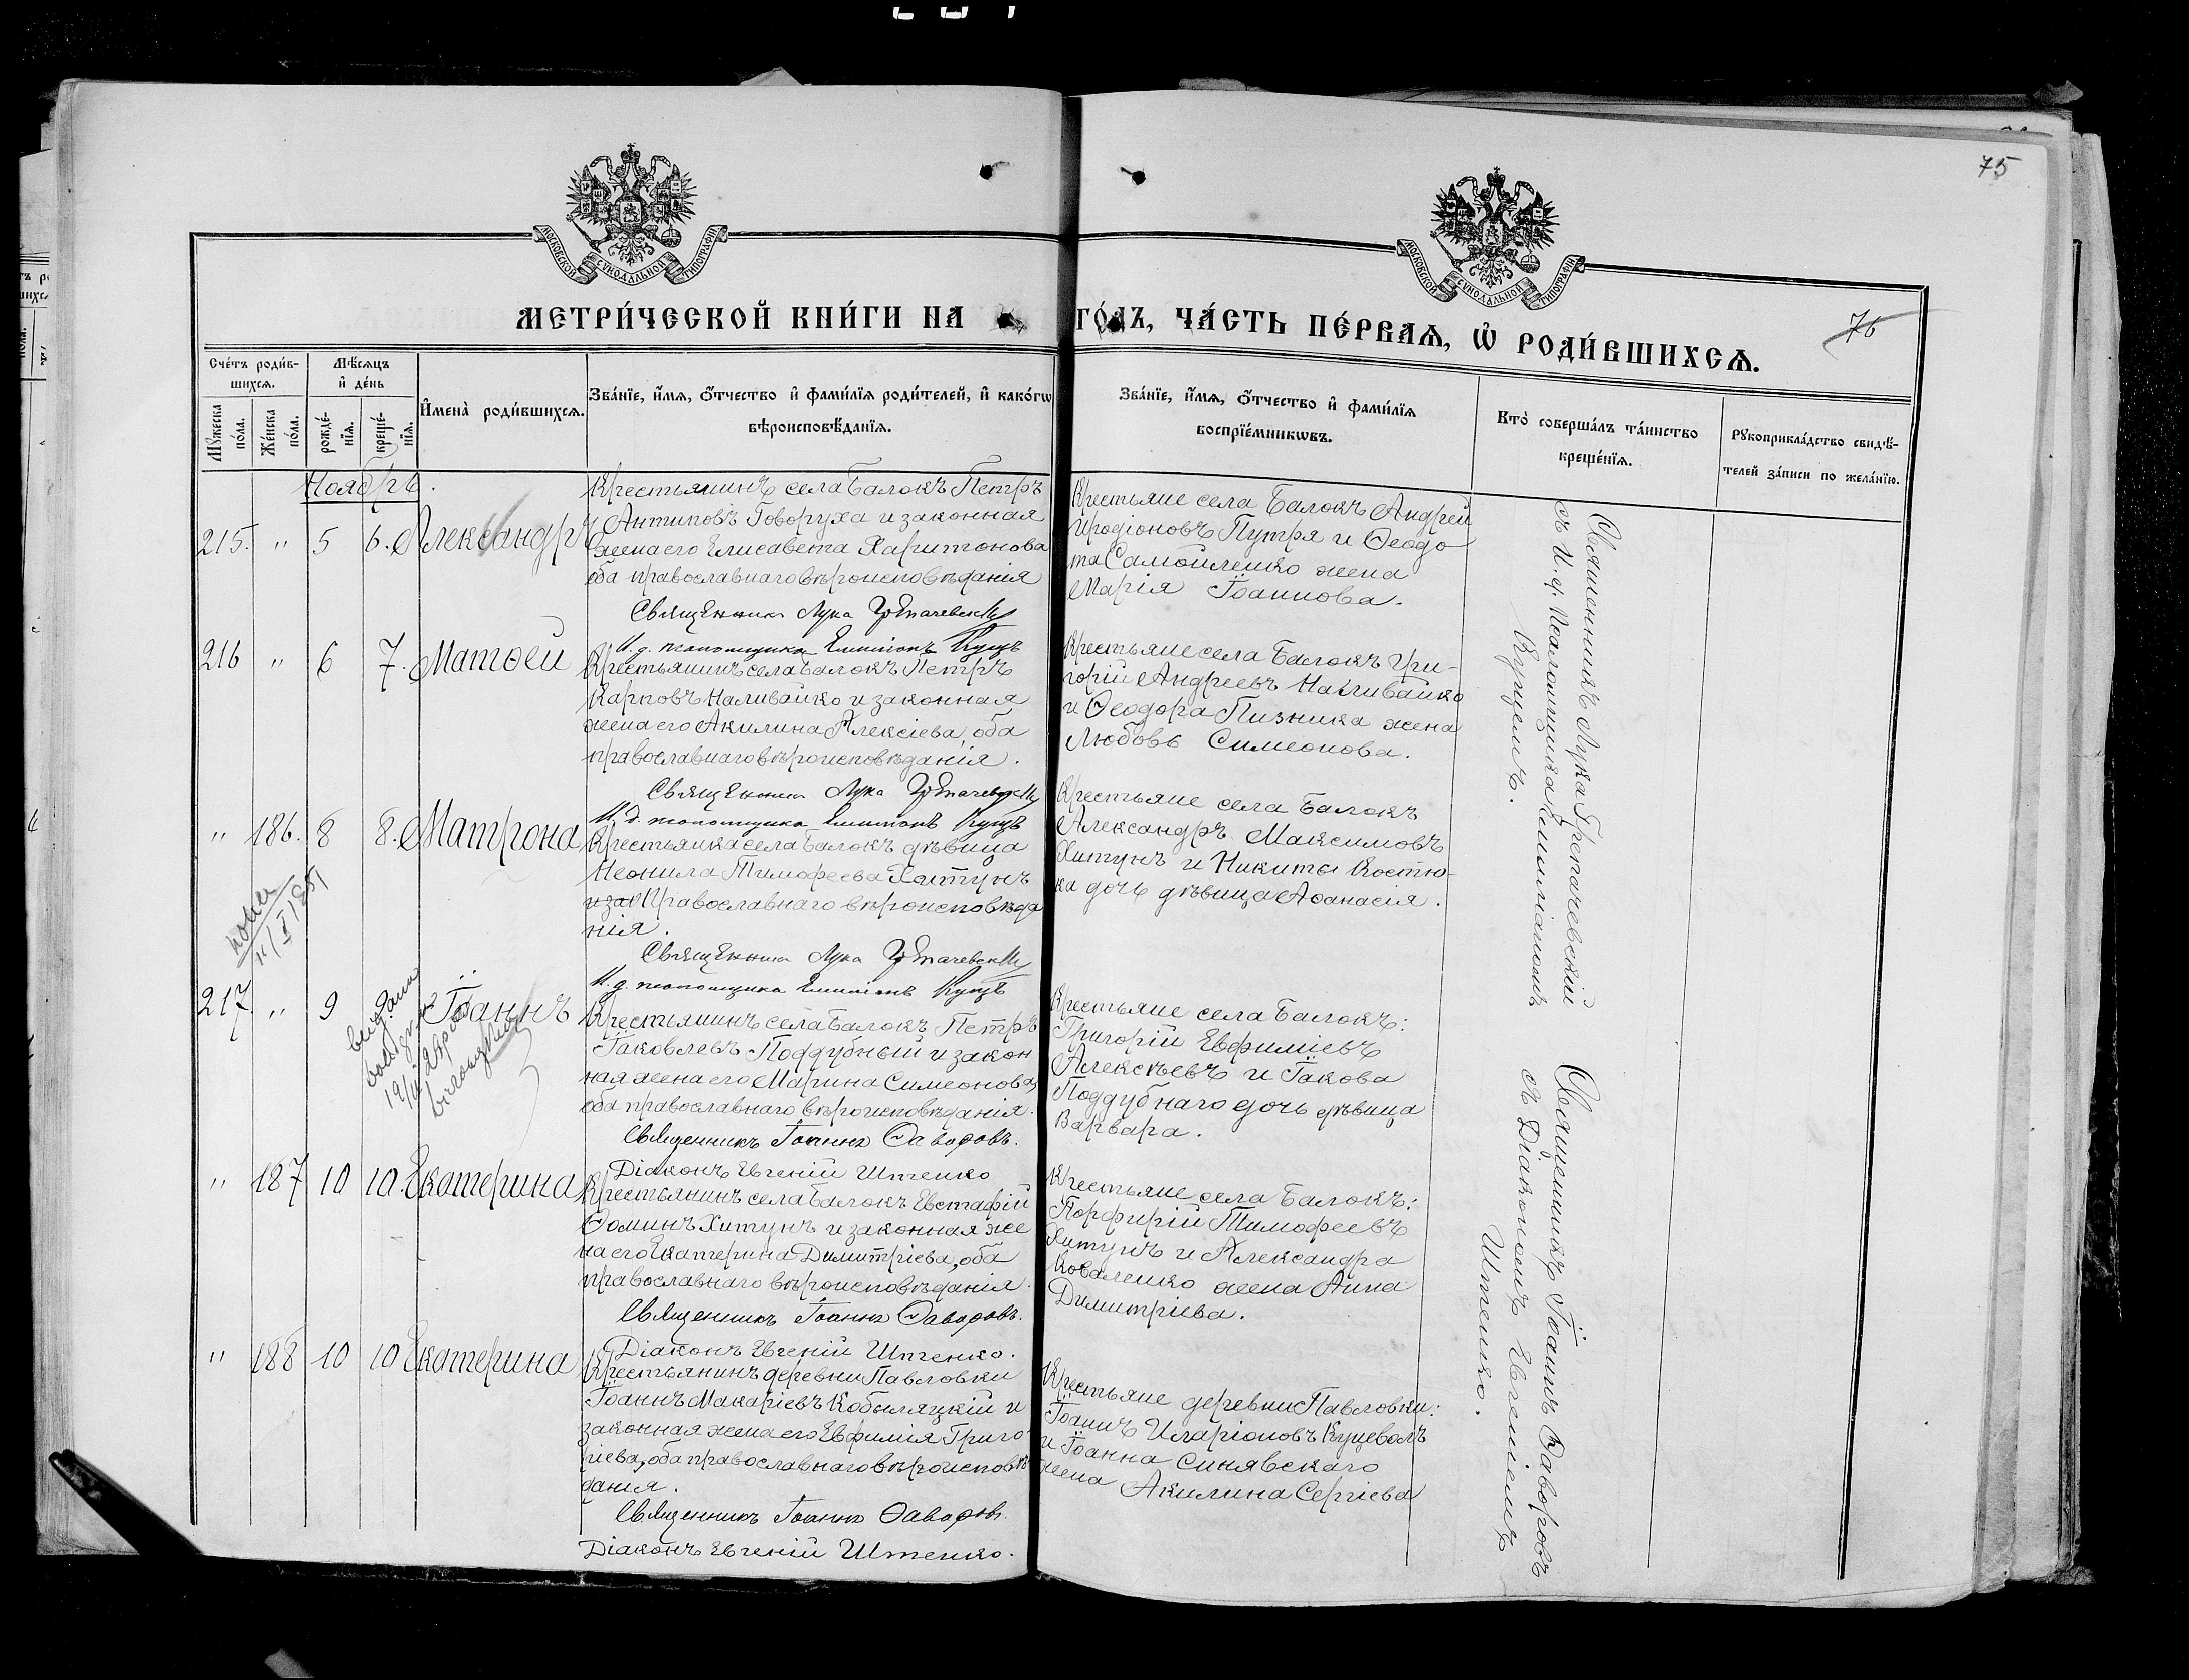 75
МОСКОВСКОЙ СѴНОДАЛЬНОЙ ТИПОГРАФІИ
МОСКОВСКОЙ СѴНОДАЛЬНОЙ ТИПОГРАФІИ
МЕТРИ́ЧЕСКОЙ КНИ́ГИ НА
ГО́ДЪ, ЧА́СТЬ ПЕ́РВАѦ, Ѡ҆ РОДИ́ВШИХСѦ.
76
Сче́тъ роди́в-
шихсѧ.
Мѣ́сѧцъ
и҆ де́нь
Мꙋ́жеска
по́ла.
Же́нска
по́ла.
рожде́-
нїѧ.
креще́-
нїѧ.
И҆мена̀ роди́вшихсѧ.
Зва́нїе, и҆́мѧ, ѻ҆́тчество и҆ фами́лїѧ роди́телей, и҆ како́гѡ
вѣроисповѣ́данїѧ.
Зва́нїе, и҆́мѧ, ѻ҆́тчество и҆ фами́лїѧ
воспрїе́мникѡвъ.
Кто̀ соверша́лъ та́инство
креще́нїѧ.
Рꙋкоприкла́дство свидѣ́-
телей за́писи по жела́нїю.
Ноябрь.
215. " 5 6. Александръ
Крестьянинъ села Балокъ Петръ
Антиповъ Говоруха и законная
жена его Елисавета Харитонова
оба православнаго вѣроисповѣданія
Священникъ Лука Гретачевскій
И.д. псаломщика Емиліанъ Куцъ
Крестьяне села Балокъ Андрей
Иродіоновъ Путря и Ѳеодо-
та Самойленко жена
Марія Іоаннова.
216 " 6 7. Матѳей
Крестьянинъ села Балокъ Петръ
Карповъ Наливайко и законная
жена его Акилина Алексіева, оба
православнаго вѣроисповѣданія.
Священникъ Лука Гретачевскій
И.д. псаломщика Емиліанъ Куцъ
Крестьяне села Балокъ Гри-
горій Андреевъ Наливайко
и Ѳеодора Пизника жена
Любовь Симеонова.
" 186. 8 8. Матрона
Крестьянка села Балокъ дѣвица
Неонила Тимофеева Хитунъ
и зак Православнаго вѣроисповѣда
нія.
Священникъ Лука Гретачевскій
И.д. псаломщика Емиліанъ Куцъ
Крестьяне села Балокъ
Александръ Максимовъ
Хитунъ и Никиты Костю-
ка дочь дѣвица Аѳанасія.
217 " 9 Іоаннъ
Крестьянинъ села Балокъ Петръ
Іаковлевъ Поддубный и закон
ная жена его Марина Симеонова,
оба православнаго вѣроисповѣданія.
Священникъ Іоаннъ Ѳаворовъ.
Діаконъ Евгеній Штепко
Крестьяне села Балокъ:
Григорій Евфиміевъ
Алексѣевъ и Іакова
Поддубнаго дочь дѣвица
Варвара.
" 187 10 10. Екатерина
Крестьянинъ села Балокъ Евстафій
Ѳоминъ Хитунъ и законная же
на его Екатерина Димитріева, оба
православнаго вѣроисповѣданія.
Священникъ Іоаннъ Ѳаворовъ.
Діаконъ Евгеній Штепко.
Крестьяне села Балокъ:
Порфирій Тимофеевъ
Хитунъ и Александра
Коваленко жена Анна
Димитріева.
" 188 10 10 Екатерина
Крестьянинъ деревни Павловки
Іоаннъ Макаріевъ Кобыляцкій и
законная жена его Евфимія Григо-
ріева, оба православнаго вѣроисповѣ
данія.
Священникъ Іоаннъ Ѳаворовъ.
Діаконъ Евгеній Штепко.
Крестьяне деревни Павловки:
Іоаннъ Иларіоновъ Куцеволъ
и Іоанна Синявскаго
жена Акилина Сергіева
Священникъ Лука Гретачевскій
съ И.д. Псаломщика Емиліаномъ
Куцемъ.
Священникъ Іоаннъ Ѳаворовъ
съ Діакономъ Евгеніемъ
Штепко.